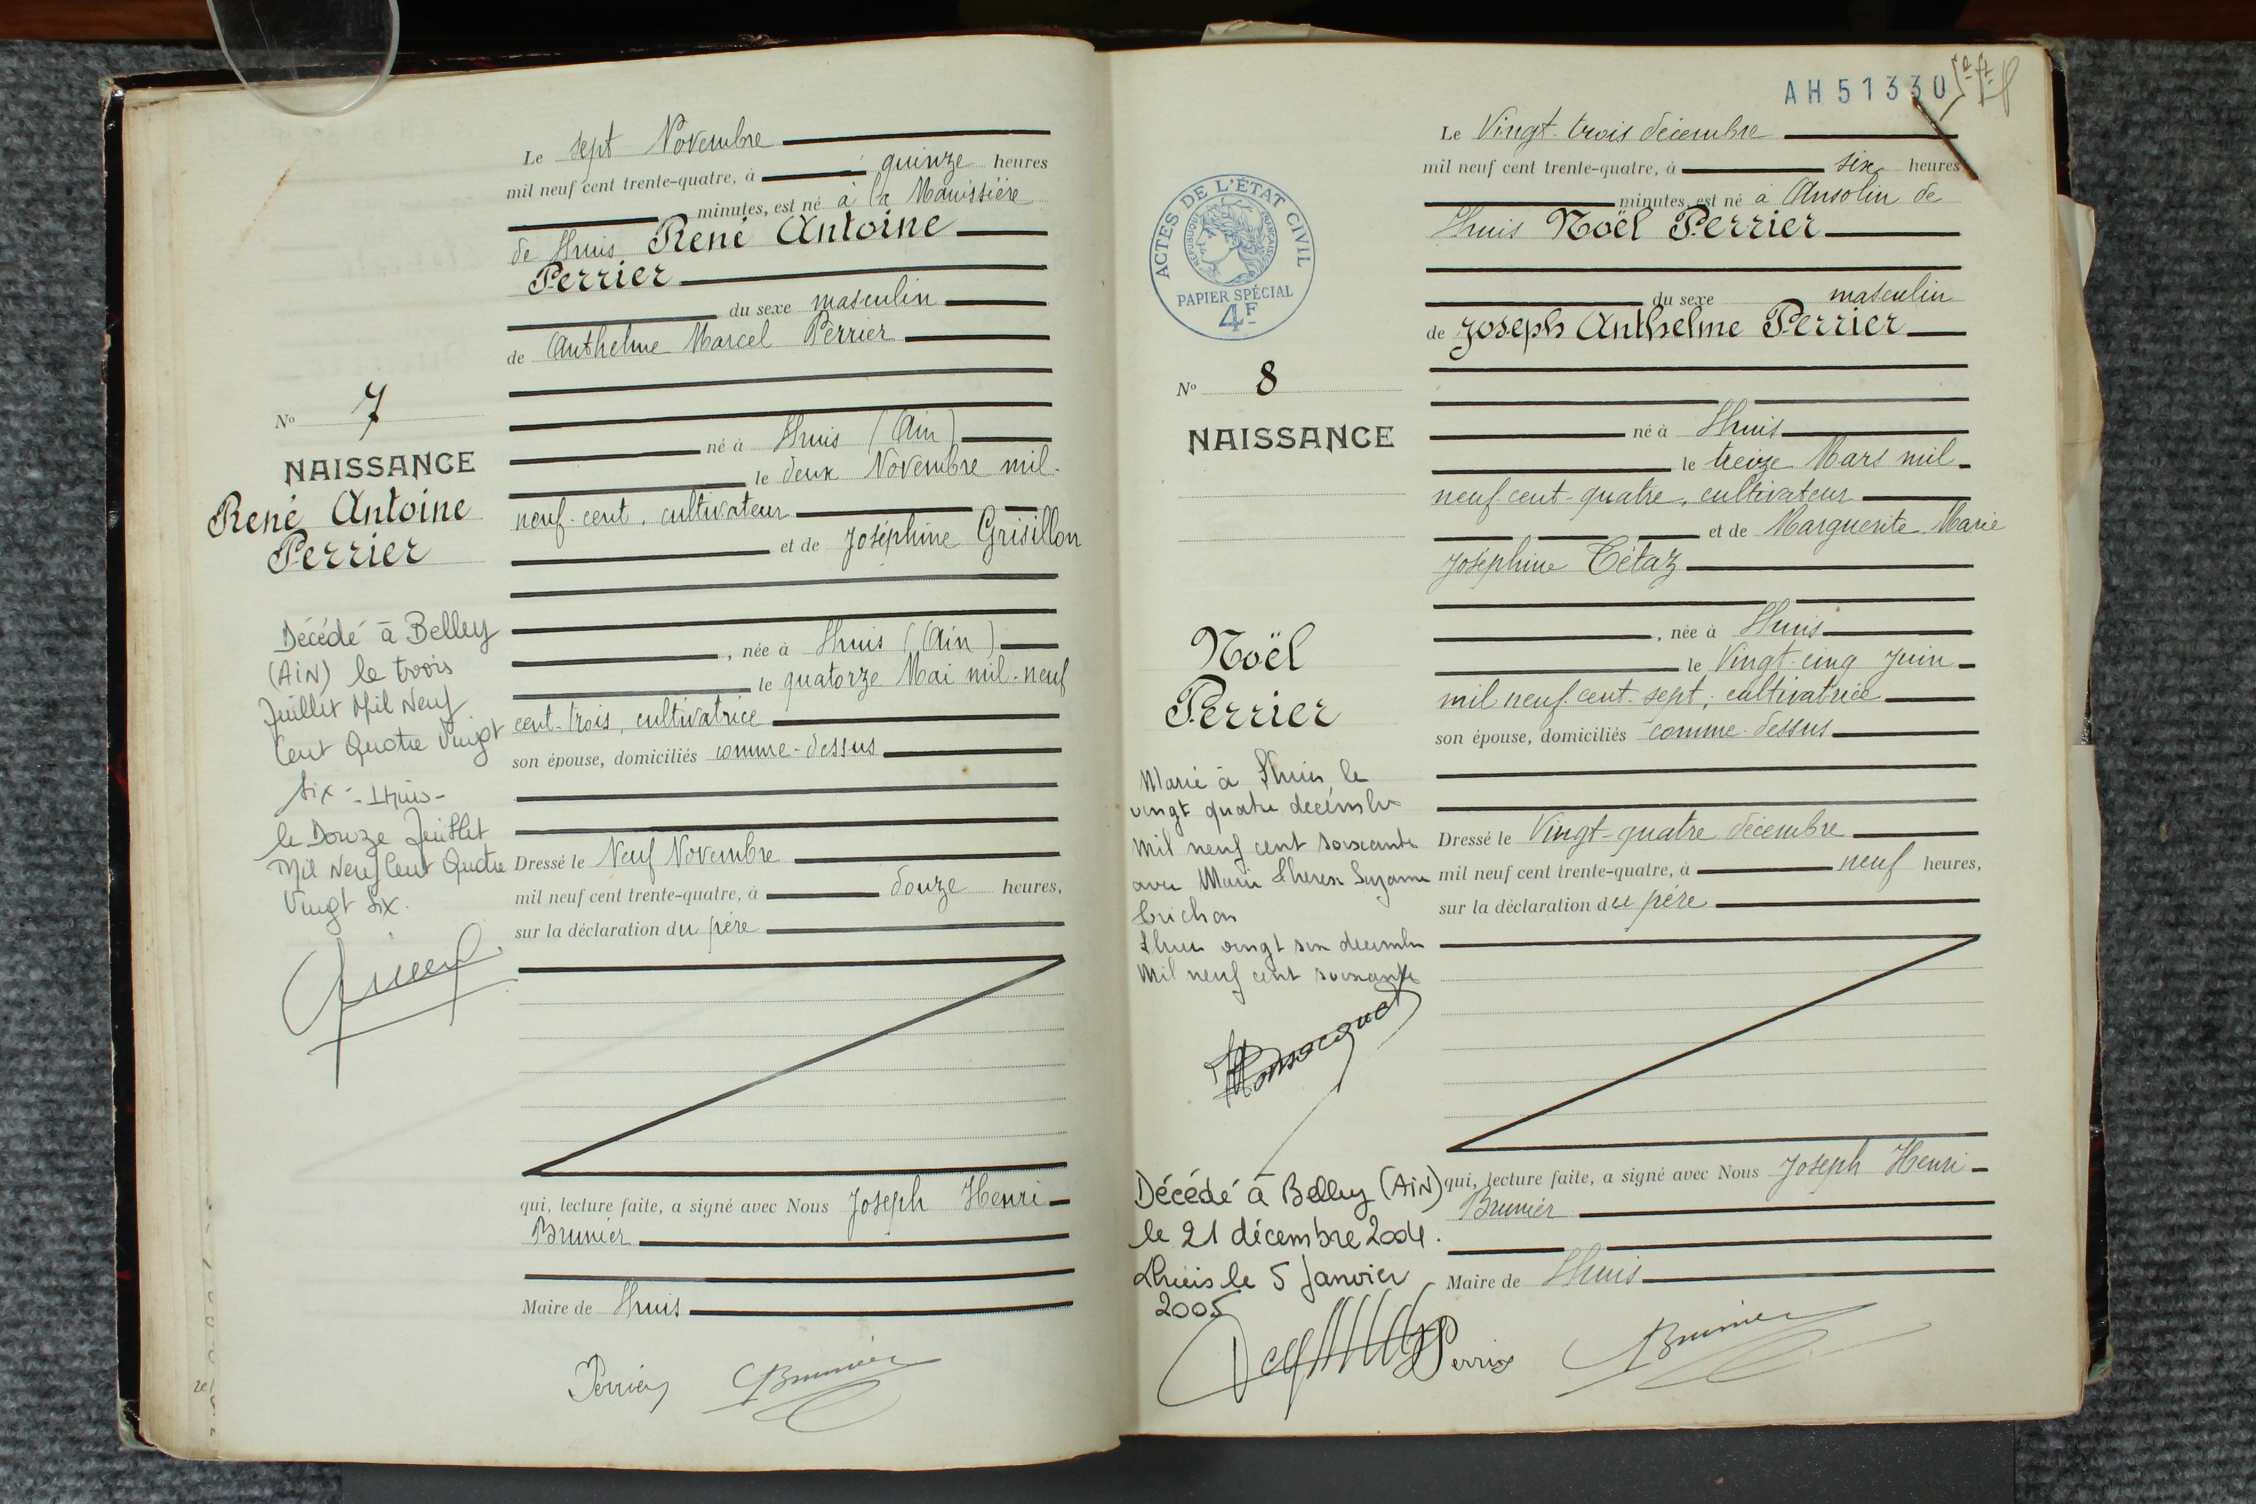 Le sept Novembre
mil neuf cent trente-quatre, à quinze heures
minutes, est né à la Maussière
de Lhuis René Antoine
Perrier
du sexe masculin
de Anthelme Marcel Perrier
né à Lhuis (Ain)
le deux Novembre mil-
neuf-cent, cultivateur
et de Joséphine Grisillon
, née à Lhuis (Ain)
le quatorze Mai mil-neuf
cent-trois, cultivatrice
son épouse, domiciliés comme-dessus
Dressé le Neuf Novembre
mil neuf cent trente-quatre, à douze heures,
sur la déclaration du père
qui, lecture faite, a signé avec Nous Joseph Henri
Brunier
Maire de Lhuis
Perrier Brunier
No 7
NAISSANCE
René Antoine
Perrier
Décédé à Belley
(AIN) le trois
Juillet Mil Neuf
Cent Quatre Vingt
Six - Lhuis -
le Douze Juillet
Mil Neuf Cent Quatre
Vingt Six.
AH51330
Le Vingt-trois décembre
mil neuf cent trente-quatre, à six heures
minutes, est né à Ansolin de
Lhuis Noël Perrier
du sexe masculin
de Joseph Anthelme Perrier
né à Lhuis
le treize Mars mil
neuf-cent-quatre, cultivateur
et de Marguerite Marie
Joséphine Tétaz
, née à Lhuis
le Vingt-cinq Juin
mil neuf-cent-sept, cultivatrice
son épouse, domiciliés comme-dessus
Dressé le Vingt-quatre décembre
mil neuf cent trente-quatre, à neuf heures,
sur la déclaration du père
qui, lecture faite, a signé avec Nous Joseph Henri
Brunier
Maire de Lhuis
Perrier Brunier
ACTES DE L'ÉTAT CIVIL
RÉPUBLIQUE FRANÇAISE
PAPIER SPÉCIAL
4F
No 8
NAISSANCE
Noël
Perrier
Marié à Lhuis le
vingt quatre décembre
mil neuf cent soixante
avec Marie Thérèse Suzanne
Crichon
Lhuis vingt six décembre
mil neuf cent soixante
Décédé à Belley (AIN)
le 21 décembre 2004.
Lhuis le 5 Janvier
2005